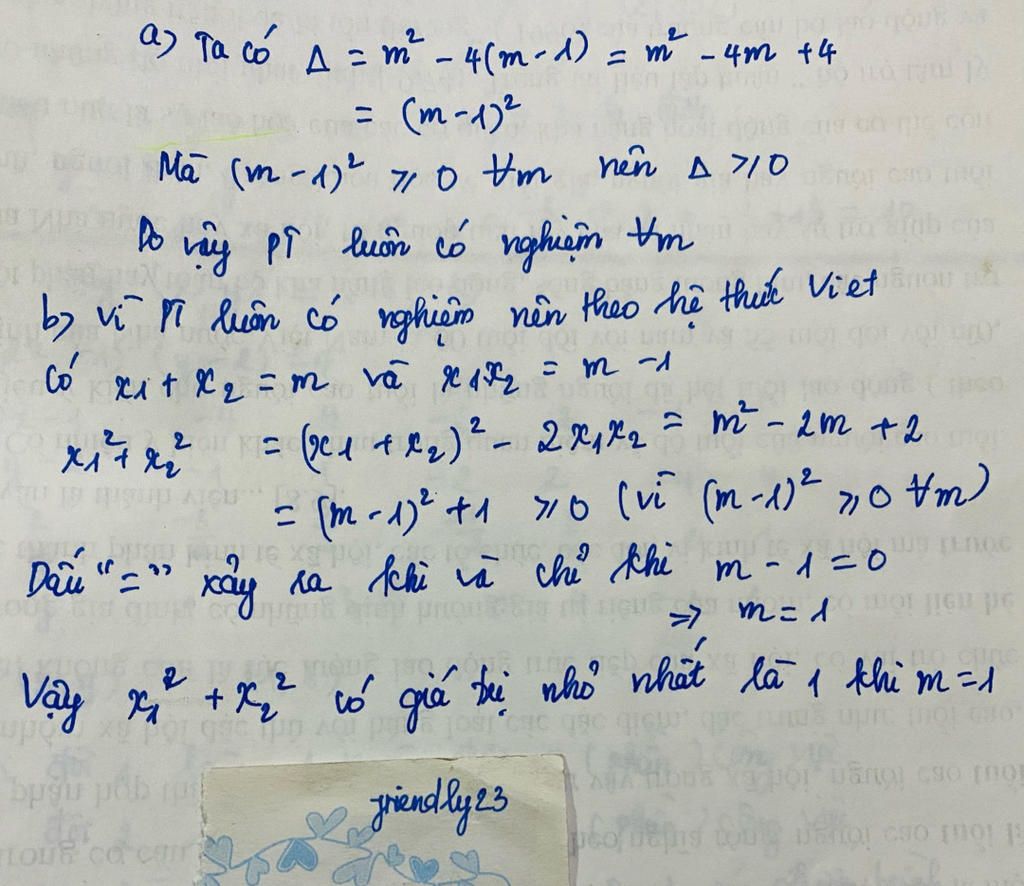 a) Ta có Δ = m² - 4(m - 1) = m² - 4m + 4
= (m - 1)²
Mà (m - 1)² ⩾ 0 ∀m nên Δ ⩾ 0
Do vậy PT luôn có nghiệm ∀m
b) Vì PT luôn có nghiệm nên theo hệ thức Viet
có x₁ + x₂ = m và x₁x₂ = m - 1
x₁² + x₂² = (x₁ + x₂)² - 2x₁x₂ = m² - 2m + 2
= (m - 1)² + 1 ⩾ 0 (vì (m - 1)² ⩾ 0 ∀m)
Dấu "=" xảy ra khi và chỉ khi m - 1 = 0
⇒ m = 1
Vậy x₁² + x₂² có giá trị nhỏ nhất là 1 khi m = 1
friendly23